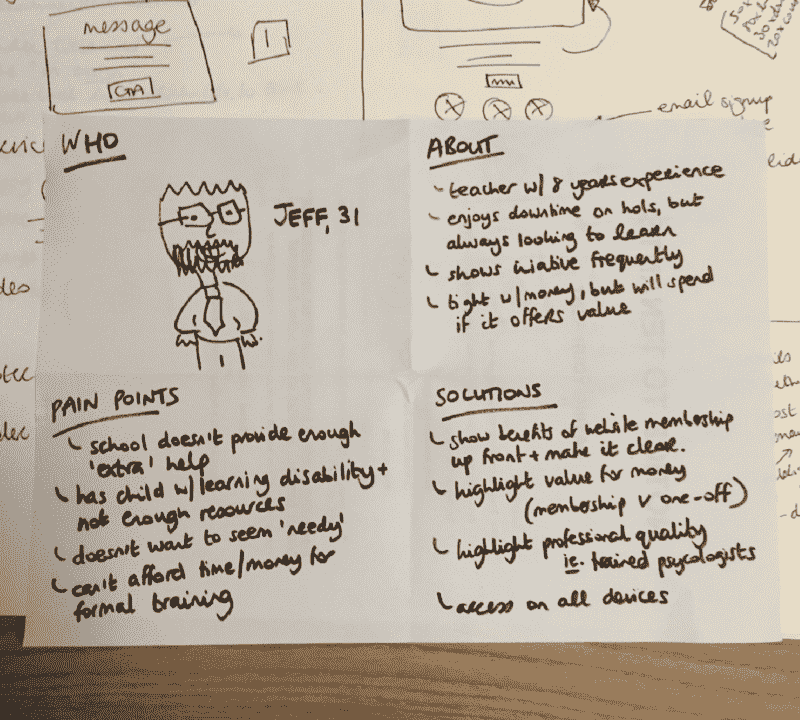 message
CTA
1
email signup
WHO
JEFF, 31
ABOUT
teacher w/ 8 years experience
enjoys downtime on hols, but
always looking to learn
shows iniative frequently
tight w/money, but will spend
if it offers value
PAIN POINTS
school doesn't provide enough
'extra' help
has child w/learning disability +
not enough resources
doesn't want to seem 'needy'
can't afford time/money for
formal training
SOLUTIONS
show benefits of website membership
up front + make it clear.
highlight value for money
(membership v one-off)
highlight professional quality
ie. trained psycologists
access on all devices